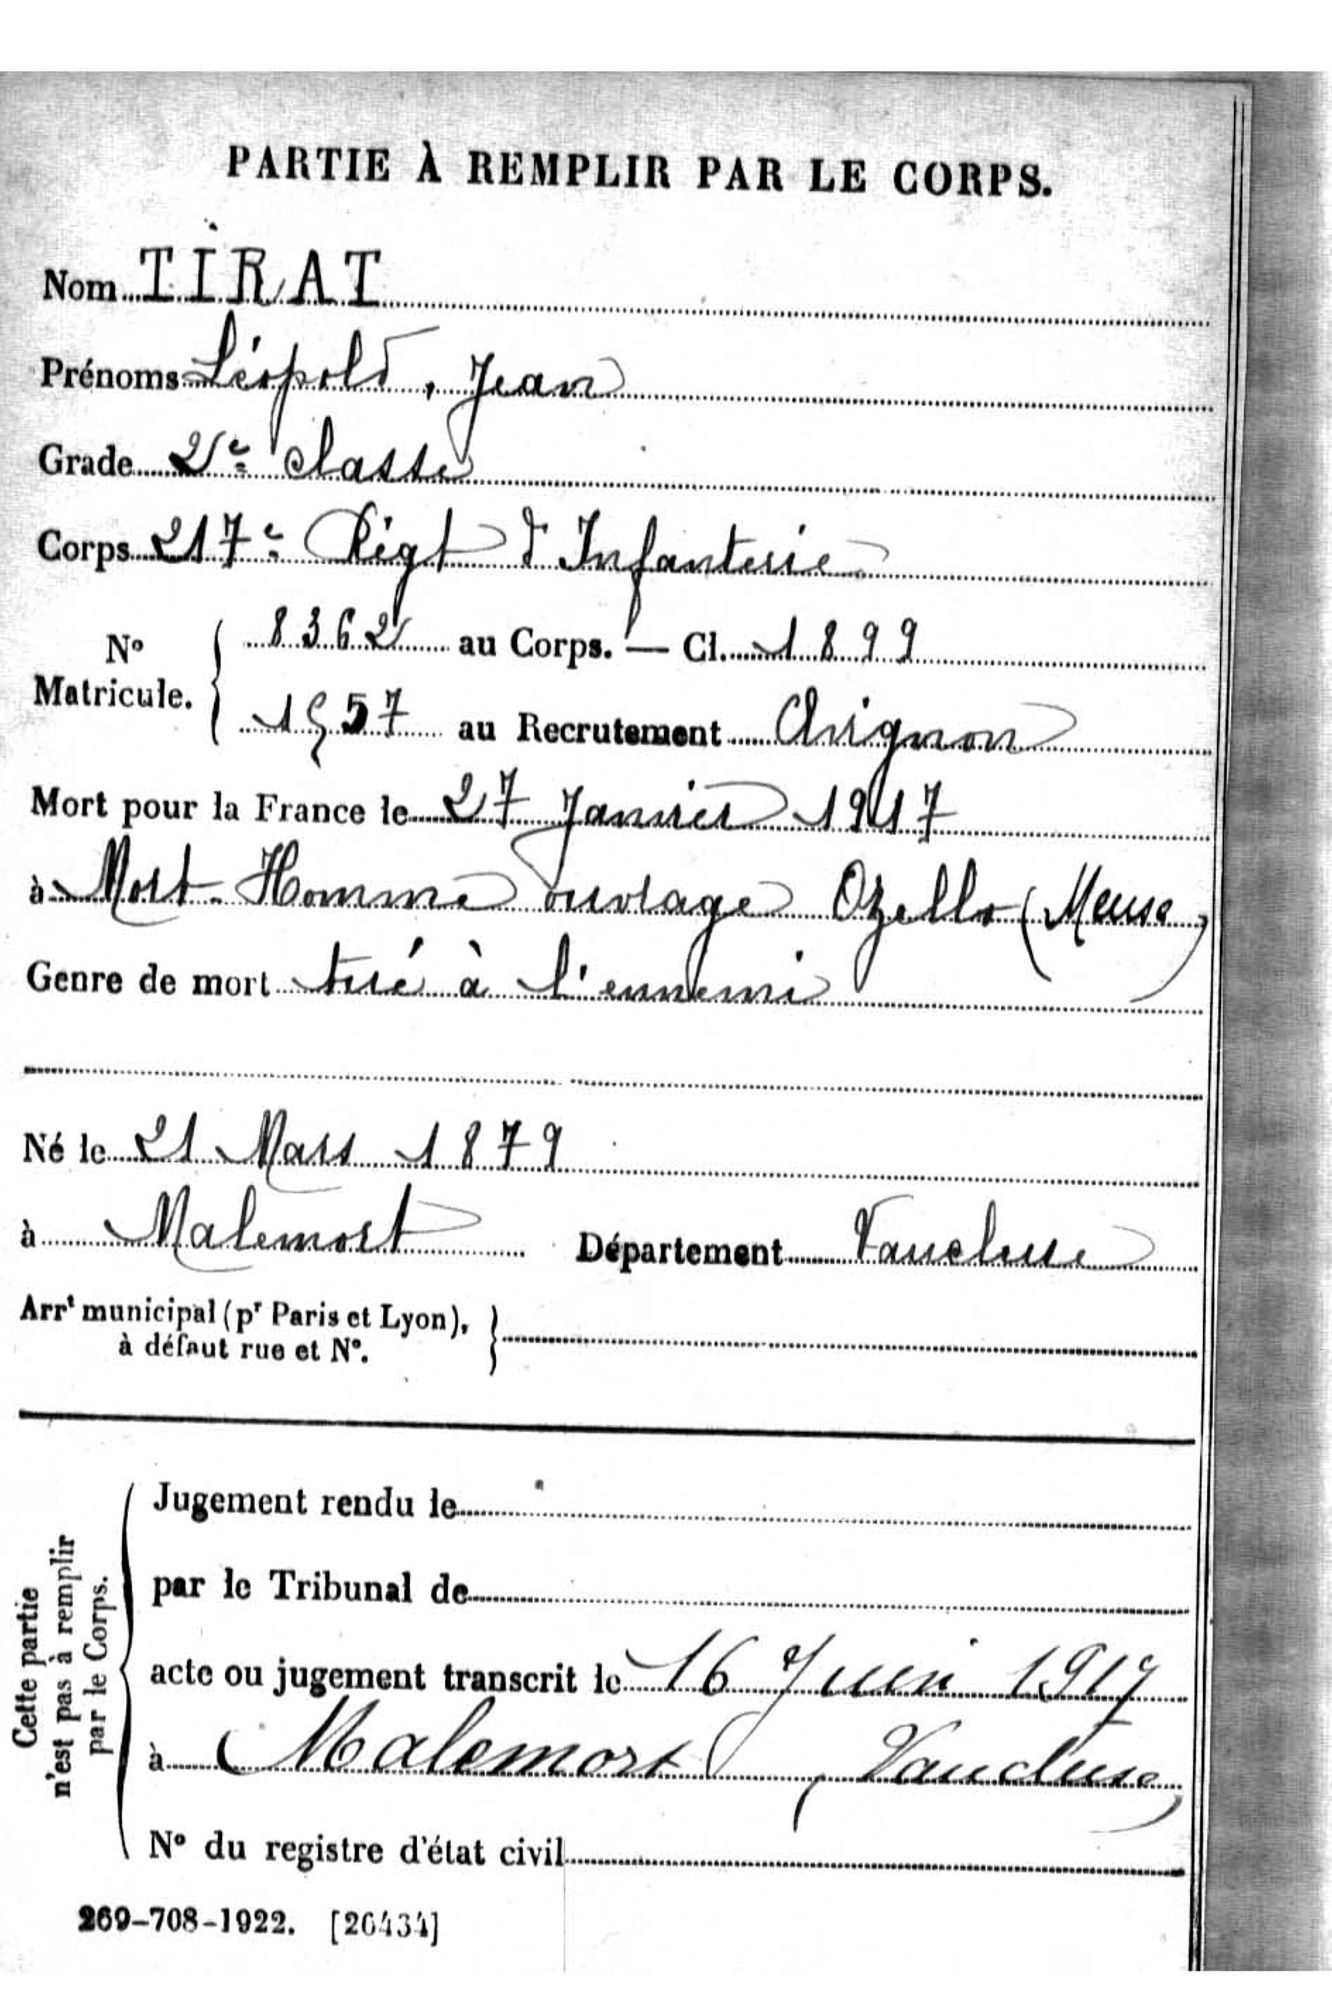 PARTIE À REMPLIR PAR LE CORPS.
Nom TIRAT
Prénoms Léopold, Jean
Grade 2e classe
Corps 217e Régt d'Infanterie
No Matricule. { 8362 au Corps. — Cl. 1899
1557 au Recrutement Avignon
Mort pour la France le 27 Janvier 1917
à Mort-Homme ouvrage (Meuse)
Genre de mort tué à l'ennemi
Né le 21 Mars 1879
à Malemort Département Vaucluse
Arrt municipal (pr Paris et Lyon),
à défaut rue et No. }
Cette partie
n'est pas à remplir
par le Corps.
Jugement rendu le
par le Tribunal de
acte ou jugement transcrit le 16 Juin 1917
à Malemort (Vaucluse)
No du registre d'état civil
269-708-1922. [26434]